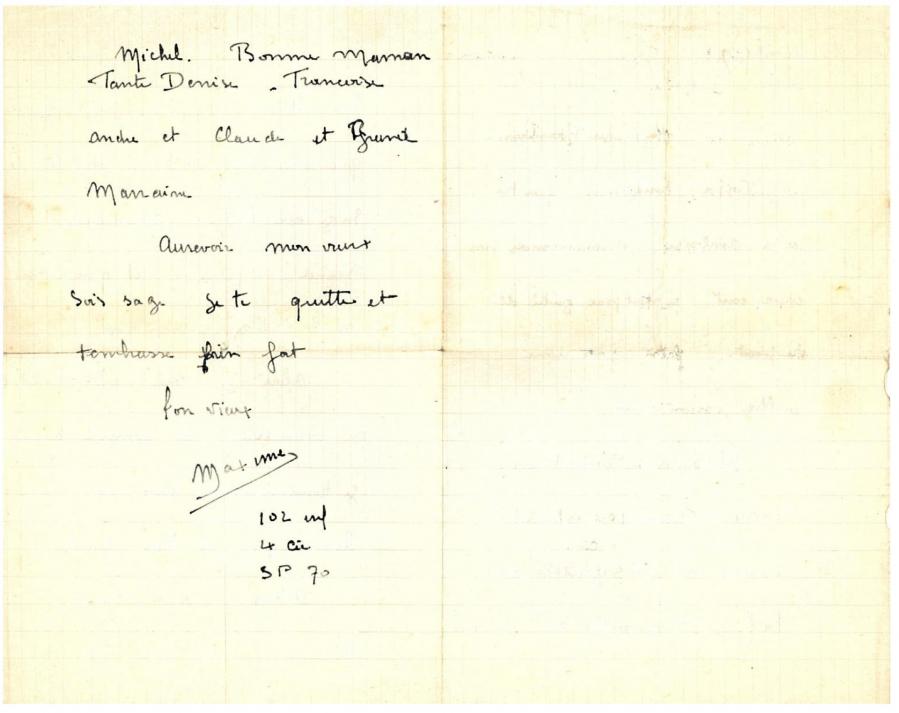 Michel. Bonne Maman
Tante Denise - Francoise
andre et Claude et
Marraine
Aurevoir mon vieux
Sois sage Je te quitte et
tembrasse bien fort
Ton vieux
Maxime
102 inf
4 Cie
SP 70